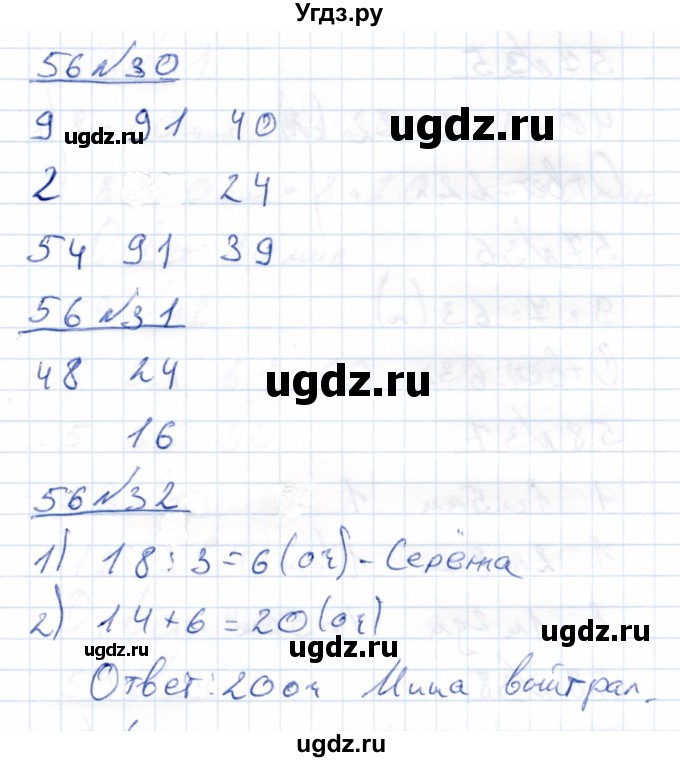 Угдз.ру
56 №30
9 91 40
ugdz.ru ugdz.ru
2 24
54 91 39
56 №31
48 24
ugdz.ru
16
56 №32
1) 18 : 3 = 6 (оч) - Серёжа
2) 14 + 6 = 20 (оч)
ugdz.ru ugdz.ru ugdz.ru
Ответ: 20 оч Миша выйграл.
ugdz.ru